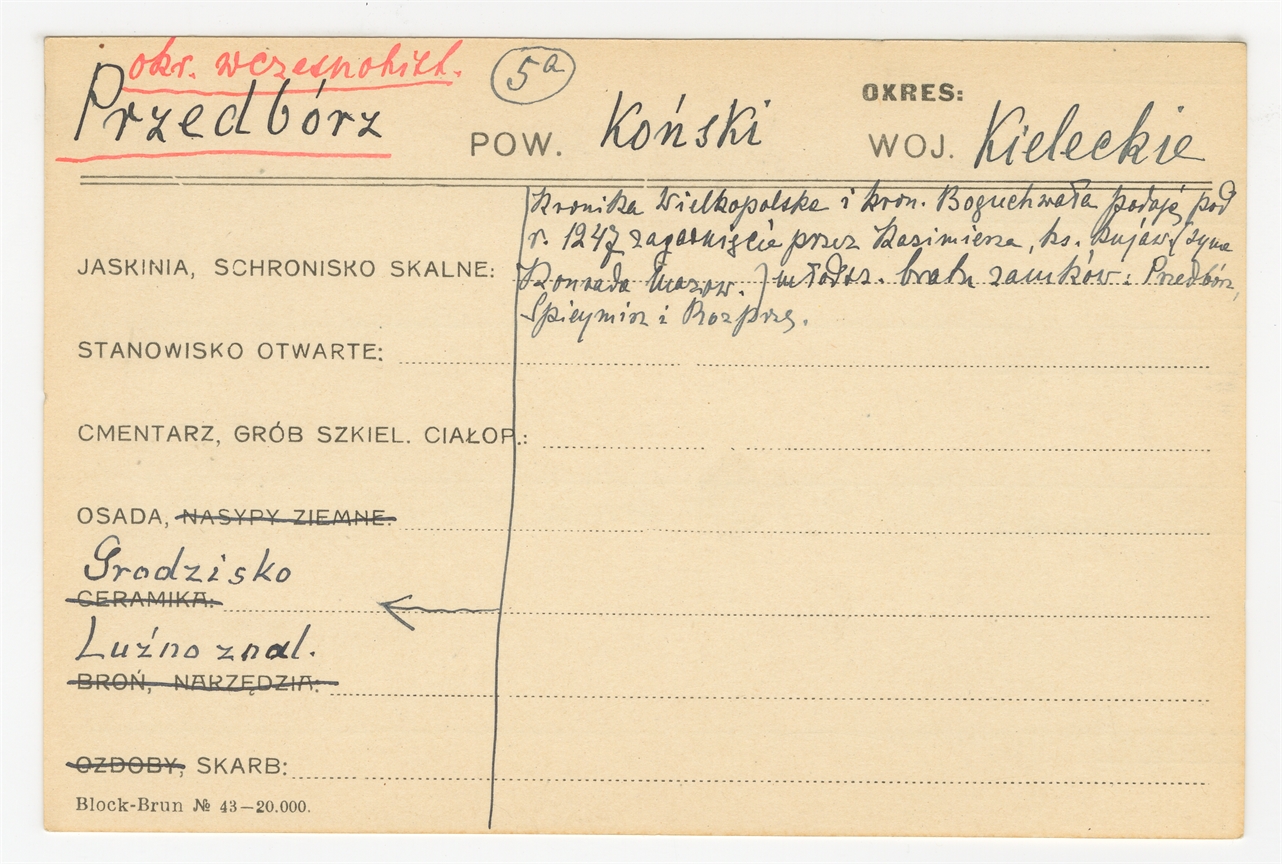 okr. wczesnohist.
5a
Przedbórz
POW. Koński
OKRES:
WOJ. Kieleckie
Kronika Wielkopolska i kron. Boguchwała podają pod
r. 1247 zagarnięcie przez Kazimierza, ks. kujaw. (syna
Konrada Mazow.) młodsz. bratu zamków: Przedbórz,
Spicymirz i Rozprzę.
JASKINIA, SCHRONISKO SKALNE:
STANOWISKO OTWARTE:
CMENTARZ, GRÓB SZKIEL. CIAŁOP.:
OSADA, NASYPY ZIEMNE:
Grodzisko
CERAMIKA:
Luźno znal.
BROŃ, NARZĘDZIA:
OZDOBY, SKARB:
Block-Brun № 43—20.000.